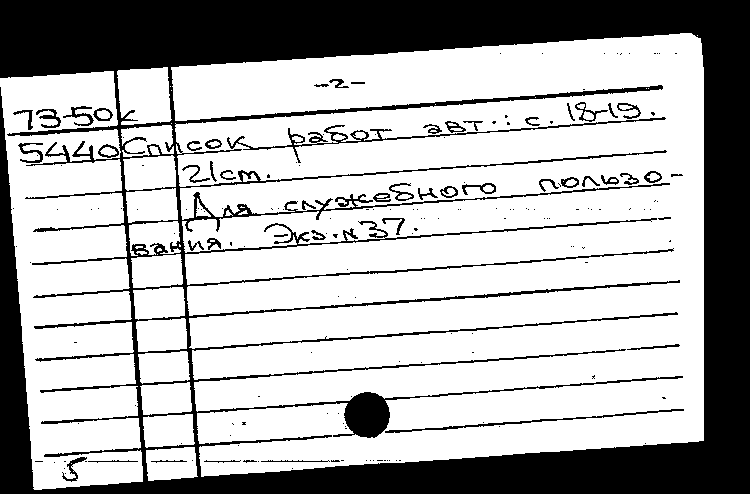 -2-
73-50к
5440 Список работ авт.: с. 18-19.
21 ст.
Для служебного пользо-
вания. Экз. № 37.
5